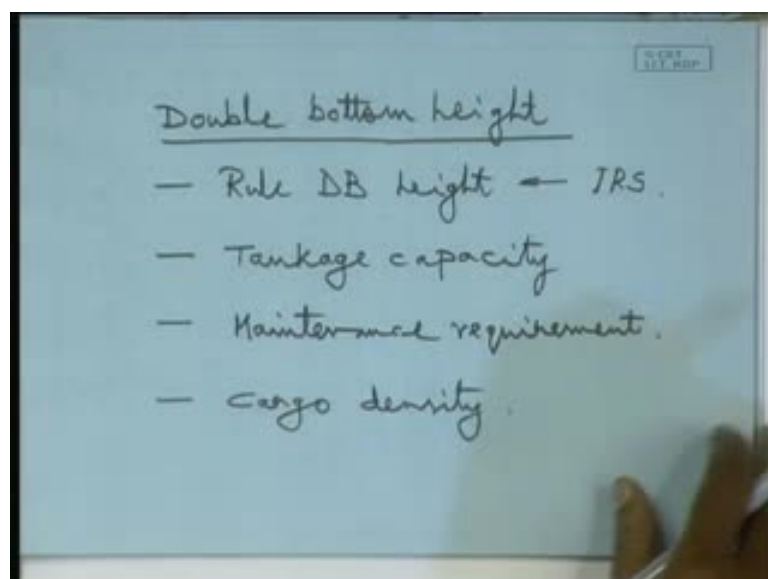 Double bottom height
— Rule DB height ← IRS.
— Tankage capacity
— Maintenance requirement.
— Cargo density.